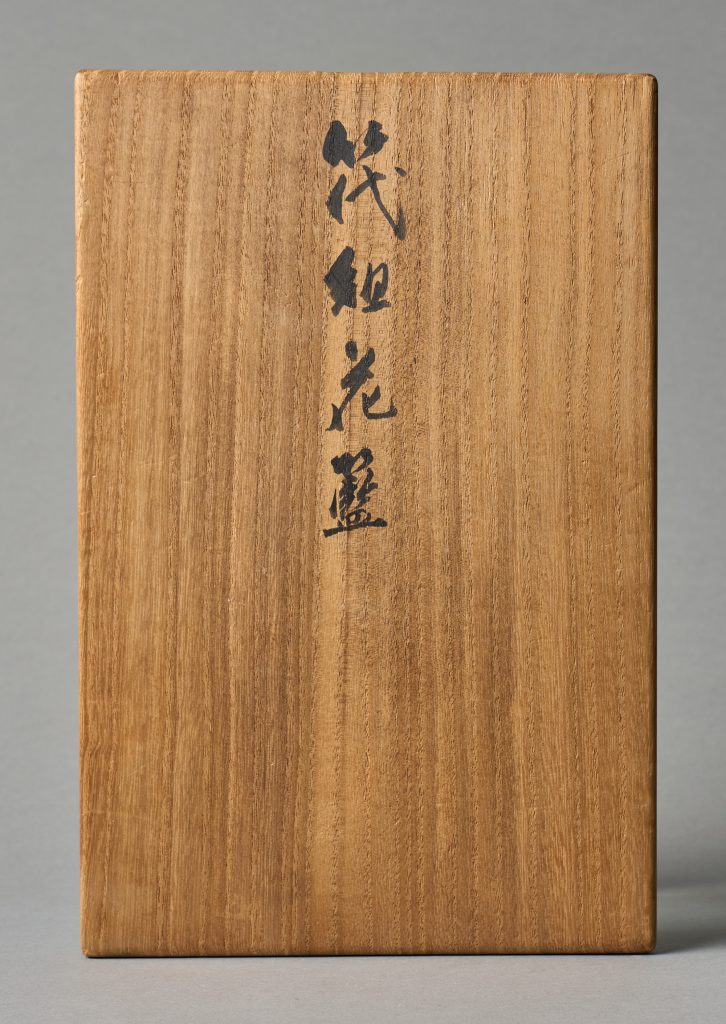 筏組花籃